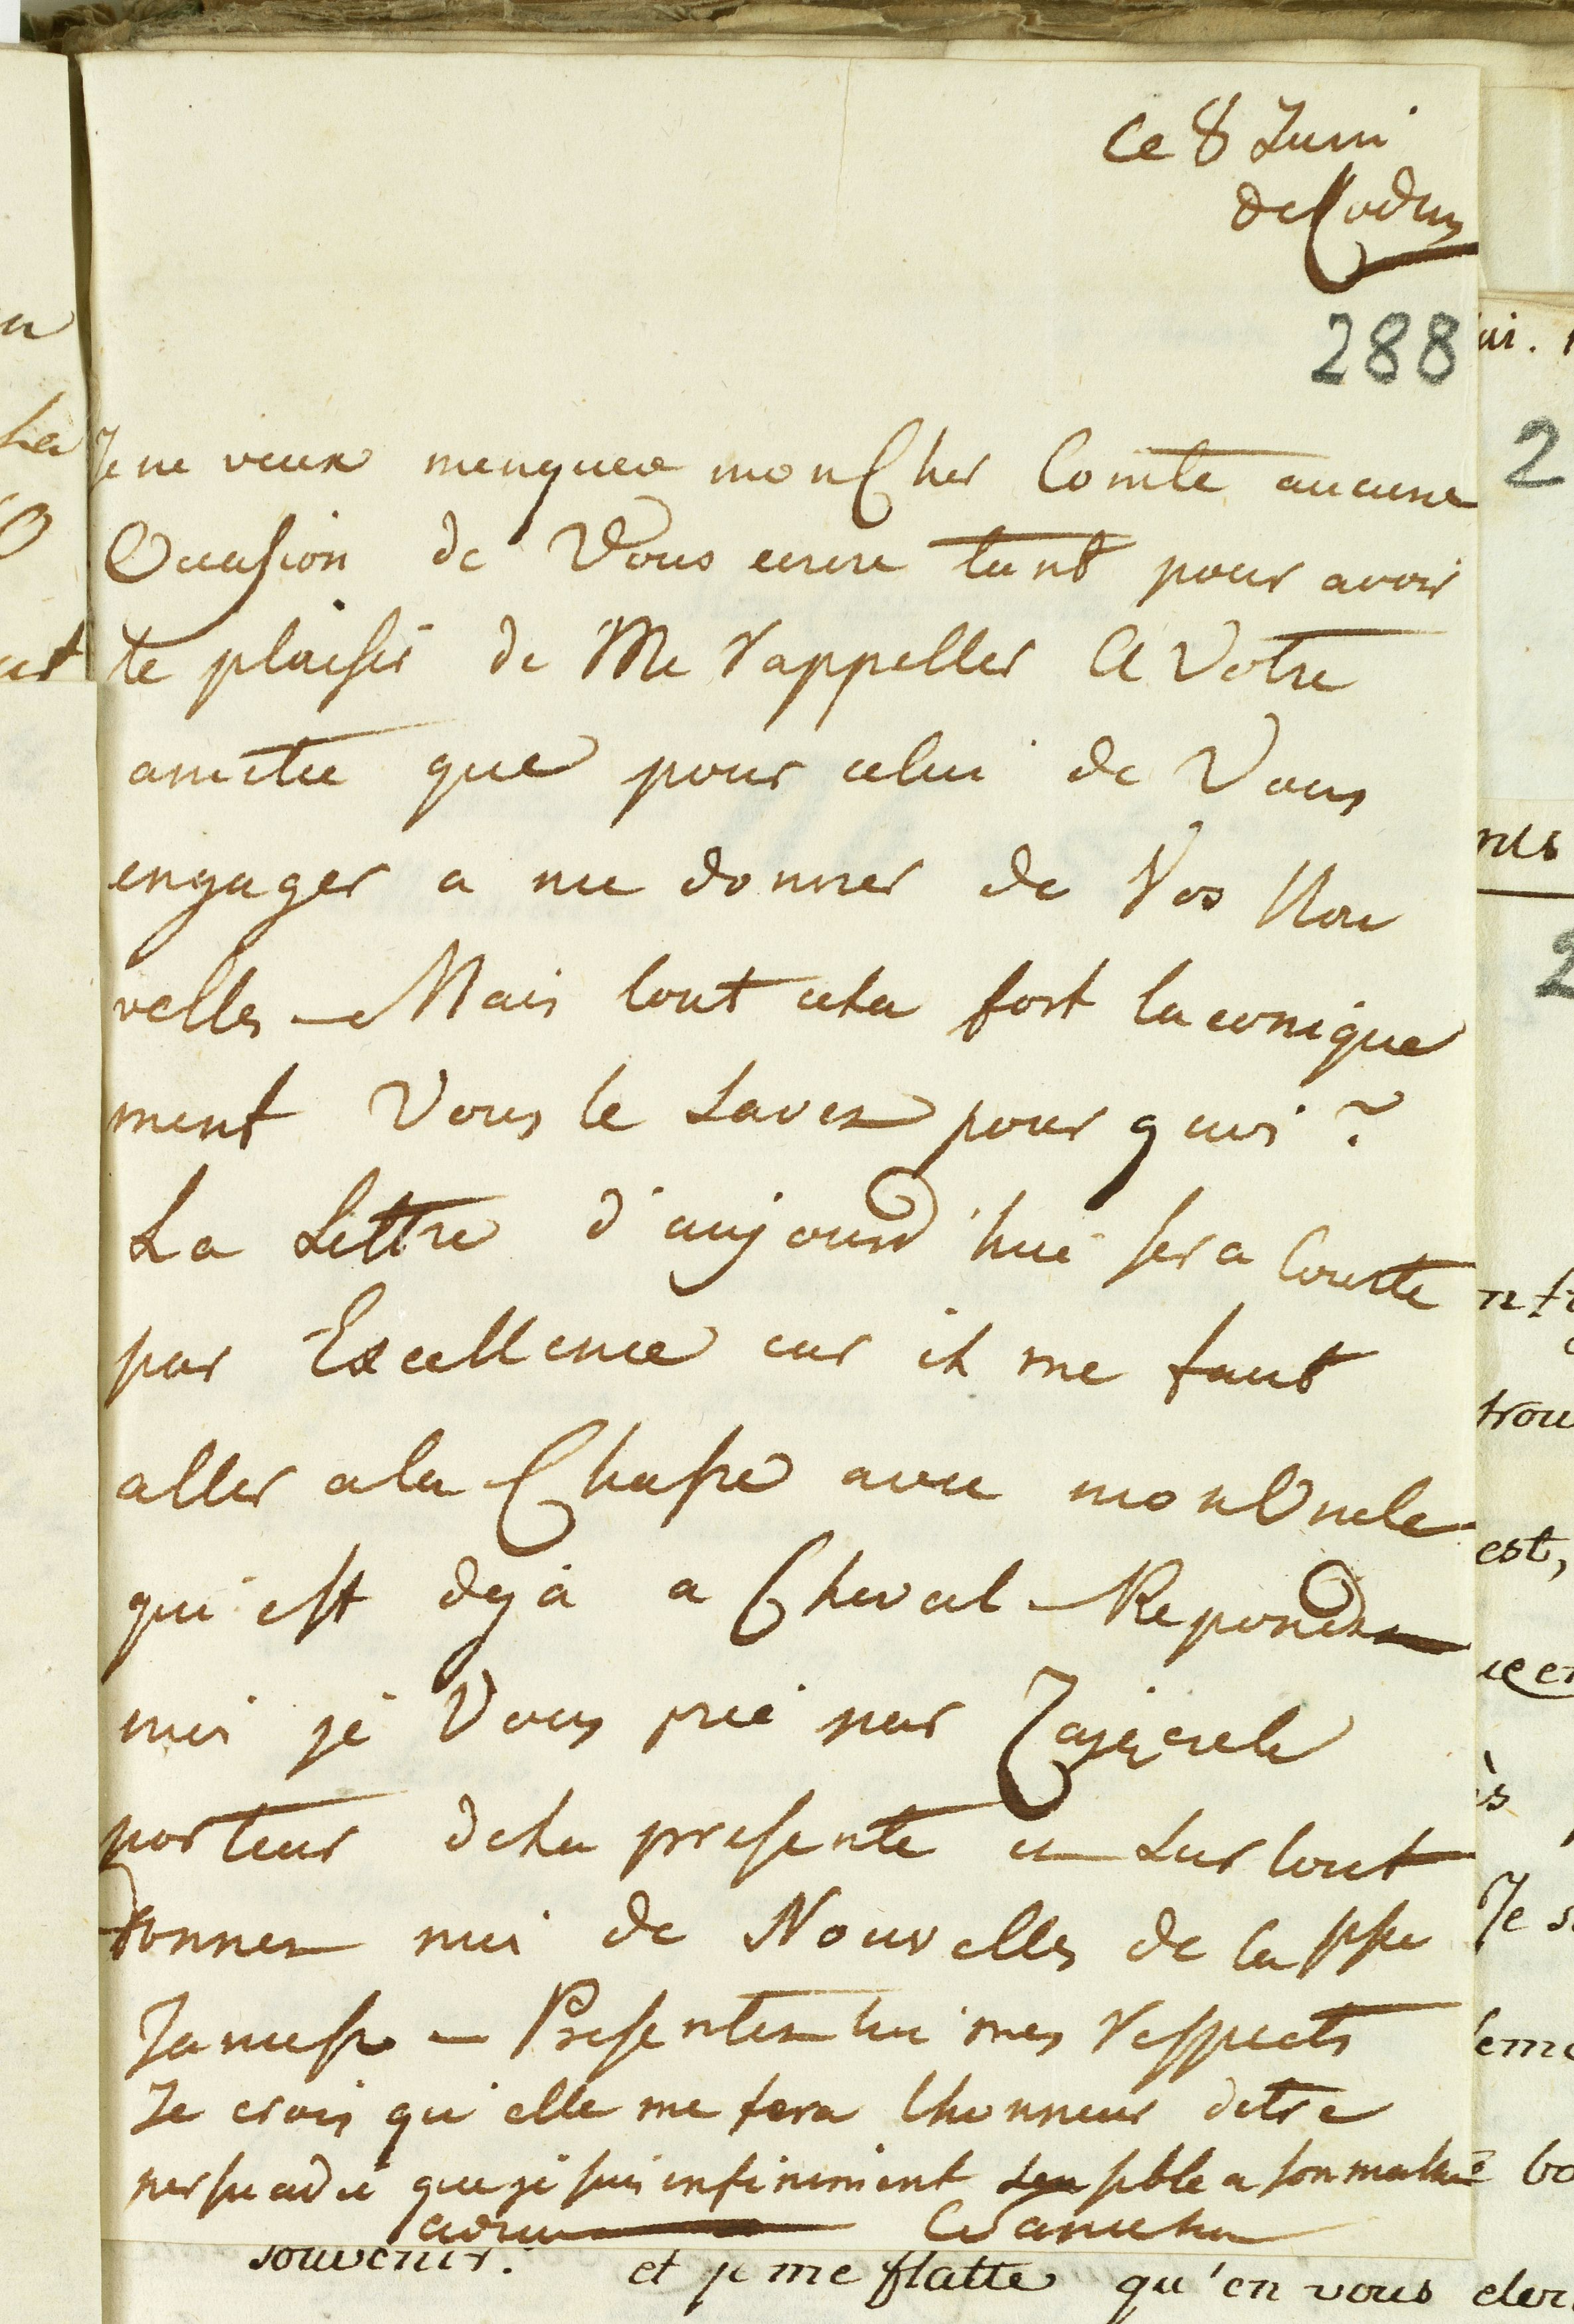 Ce 8 Juni
de
288
Je ne veux menquer mon Cher Comte aucune
Occasion de Vous ecrire tant pour avoir
le plaisir de Me rappeller a Votre
amitie que pour celui de Vous
engager a me donner de Vos Nou
velles – Mais tout cela fort laconique
ment Vous le Savez pourquoi ?
La Lettre d'aujourd'hui sera Courte
par Excellence car il me faut
aller a la Chasse avec mon Oncle
qui est deja a Cheval – Repondez
moi je Vous prie par
porteur de la presente et Sur tout
donnez moi de Nouvelles de la ppe
– Presentez lui mes respects
Je crois qu'elle me fera lhonneur detre
persuadée que je suis infiniment sensible a son malheur
adieu
n
La
O
ui.
2
2
est,
trou
Je s
souvenir. et je me flatte qu'en vous